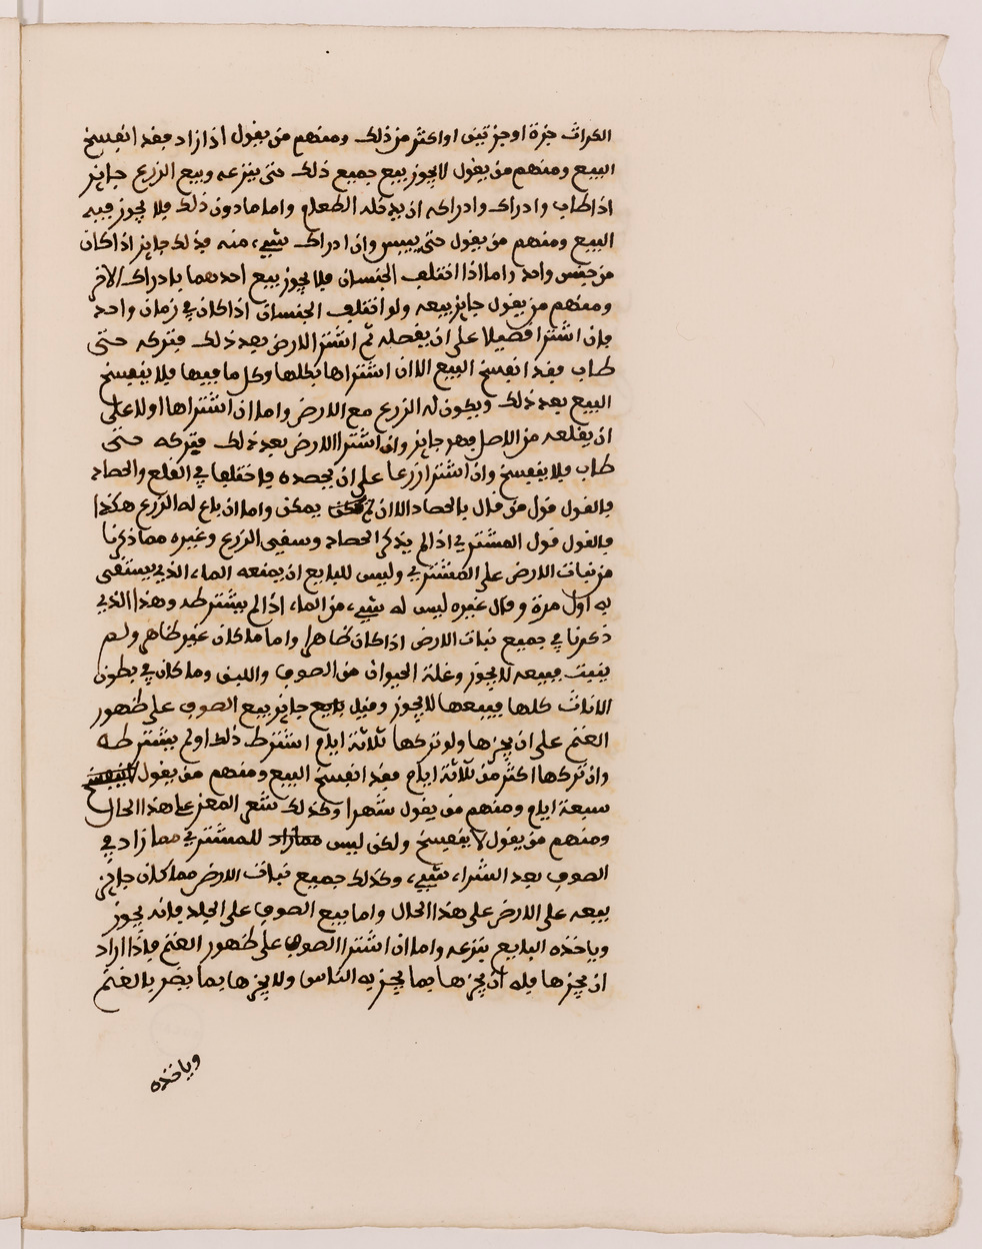 الكراث جزة او جزتين او اكثر من ذلك ومنهم من يقول اذا زاد فقد انفسخ
البيع ومنهم من يقول لا يجوز بيع جميع ذلك حتى ينزعه وبيع الزريع جايز
اذا طاب وادراك وادراكه ان يدخله الطعام واما ما دون ذلك فلا يجوز فيه
البيع ومنهم من يقول حتى ييبس وان ادراك شيء منه فذلك جايز اذا كان
من جنس واحد واما اذا اختلف الجنسان فلا يجوز بيع احدهما بادراك الاخر
ومنهم من يقول جايز بيعه ولو اختلف الجنسان اذا كان في زمان واحد
فان اشترا فصيلا على ان يفصله ثم اشترا الارض بعد ذلك فتركه حتى
طاب فقد انفسخ البيع الا ان اشتراها بكلها وكل ما فيها فلا ينفسخ
البيع بعد ذلك ويكون له الزريع مع الارض واما ان اشتراها اولا على
ان يقلعه من الاصل فهو جايز وان اشترا الارض بعد ذلك فتركه حتى
طاب فلا ينفسخ وان اشترا زرعا على ان يحصده فاختلفا في القلع والحصاد
فالقول قول من قال بالحصاد الا ان لم يمكن واما ان باع له الزريع هكذا
فالقول قول المشتري اذا لم يذكر الحصاد وسقي الزريع وغيره مما ذكرنا
من نبات الارض على المشتري وليس للبايع ان يمنعه الماء الذي يستقى
به اول مرة وقال غيره ليس له شيء من الماء اذا لم يشترطه وهذا الذي
ذكرنا في جميع نبات الارض اذا كان ظاهرا واما ما كان غير ظاهر ولم
ينبت فبيعه لا يجوز وغلة الحيوان من الصوف واللبن وما كان في بطون
الاناث كلها فبيعها لا يجوز وقيل جايز بيع الصوف على ظهور
الغنم على ان يجزها ولو تركها ثلاثة ايام اشترط ذلك او لم يشترطه
وان تركها اكثر من ثلاثة ايام فقد انفسخ البيع ومنهم من يقول
سبعة ايام ومنهم من يقول شهرا وكذلك شعر المعز على هذا الحال
ومنهم من يقول لا ينفسخ ولكن ليس للمشتري مما زاد في
الصوف بعد الشراء شيء وكذلك جميع نبات الارض مما كان جايز
بيعه على الارض على هذا الحال واما بيع الصوف على الجلد فانه يجوز
وياخذه البايع ينزعه واما ان اشترا الصوف على ظهور الغنم فاذا اراد
ان يجزها فله ان يجزها بما يجز به الناس ولا يجزها بما يضر بالغنم
وياخذه